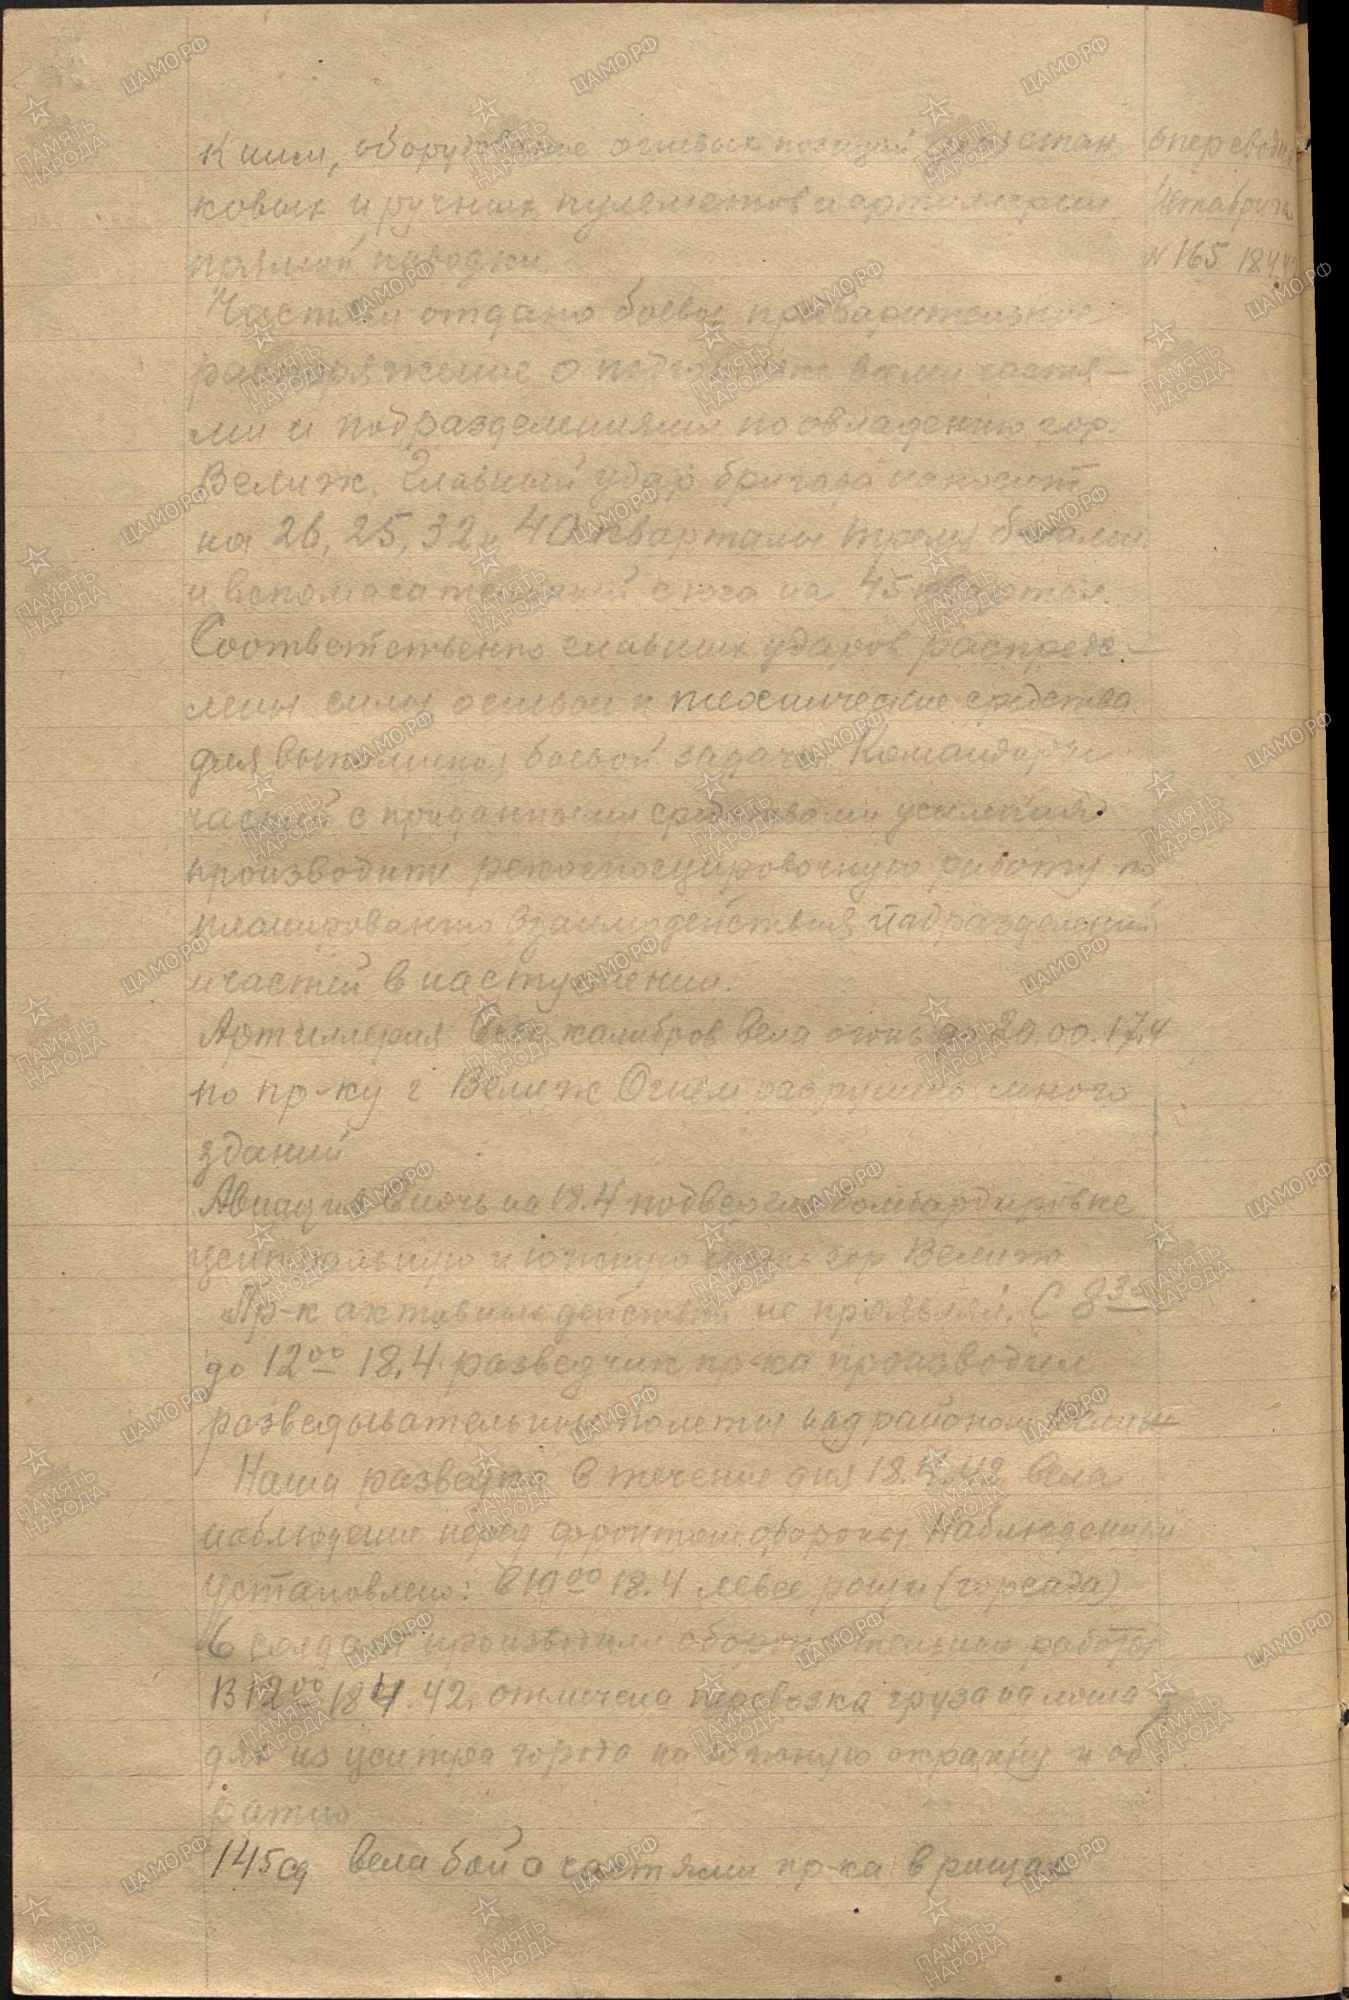 к ним, оборудование огневых позиций для стан
ковых и ручных пулеметов и артиллерии
прямой наводки.
оперсводка
штабрига
N 165 18.4.
Частям отдано боевое предварительное
распоряжение о подготовке всеми частя-
ми и подразделениями по овладению гор.
Велиж. Главный удар бригада наносит
на 26, 25, 32 и 40 кварталы тремя б-нами
и вспомогательный с юга на 45 квартал.
Соответственно главных ударов распреде-
лены силы огневые и технические средства
для выполнения боевой задачи. Командиры
частей с приданными средствами усиления
производили рекогносцировочную работу по
планированию взаимодействия подразделений
и частей в наступлении.
Артиллерия всех калибров вела огонь до 20.00. 17.4
по пр-ку г Велиж Огнем разрушено много
зданий
Авиация в ночь на 18.4 подвергла бомбардировке
центральную и южную часть гор Велиж
Пр-к активных действий не проявлял. С 8 30
до 12 00 18.4 разведчик пр-ка производил
разведывательные полеты над районом Велиж
Наша разведка в течение дня 18.4.42 вела
наблюдение перед фронтом обороны Наблюдением
установлено: в 10 00 18.4 левее рощи (горсада)
6 солдат производили оборонительные работы
В 12 00 18.4.42. отмечена перевозка груза на лоша
дях из центра города на южную окраину и об
ратно
145 сд вела бой с частями пр-ка в рощах